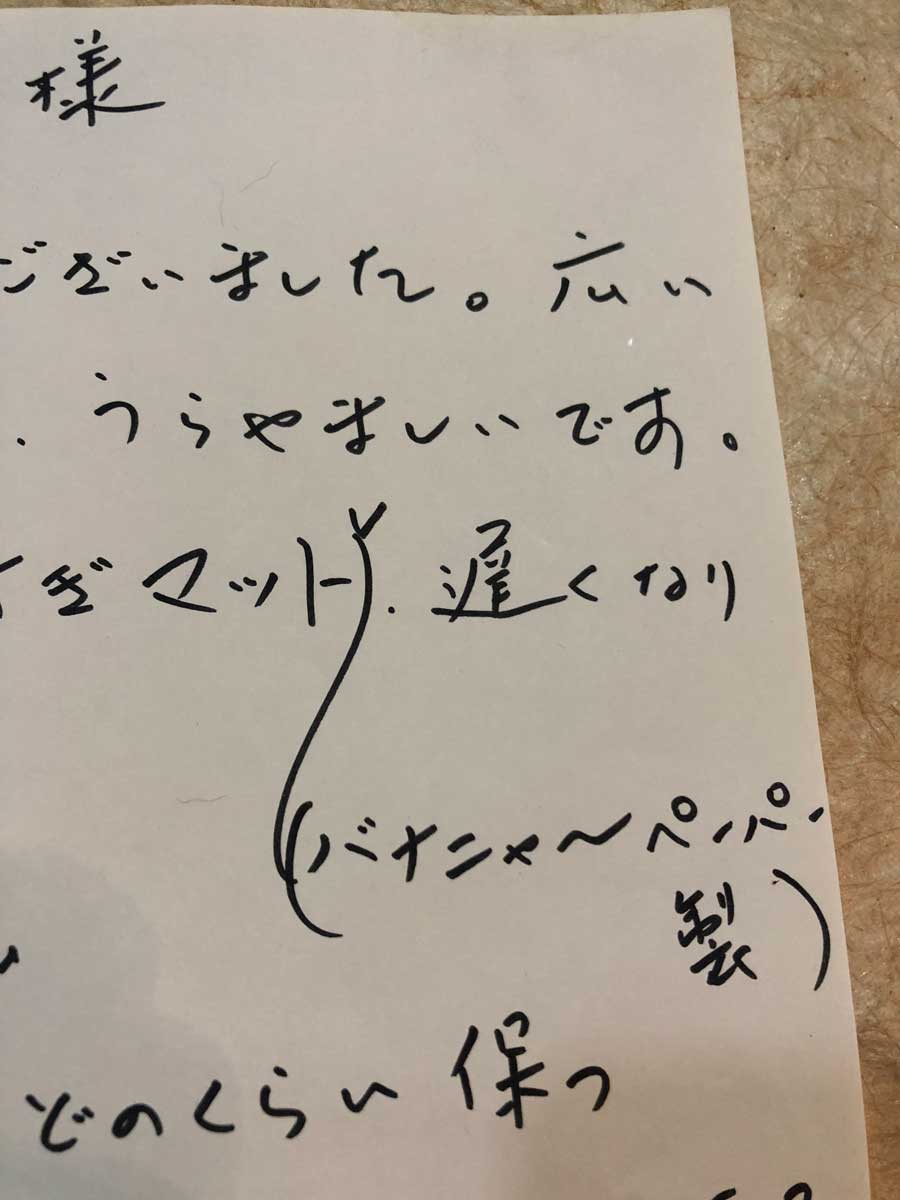 様
ございました。広い
、うらやましいです。
ぎマット、遅くなり
(バナナペーパー
製)
どのくらい保つ